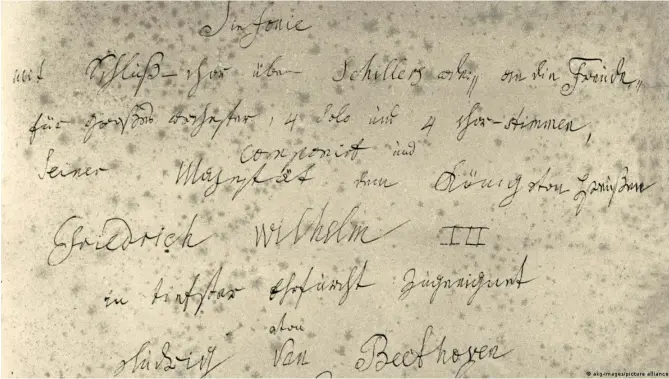 Sinfonie
mit Schluß-chor über Schillers ode „ an die Freude „
für großes orchester, 4 Solo und 4 chor-stimmen,
componirt und
Seiner Majestät dem König von Preußen
Friedrich Wilhelm III
in tiefster Ehrfurcht zugeeignet
von
Ludwig van Beethoven
© akg-images/picture alliance